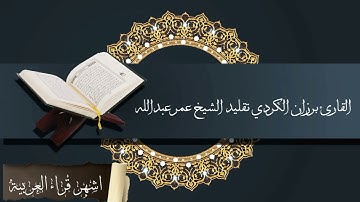 القارئ برزان الكردي تقليد الشيخ عمر عبدالله
اشهر قراء العربية